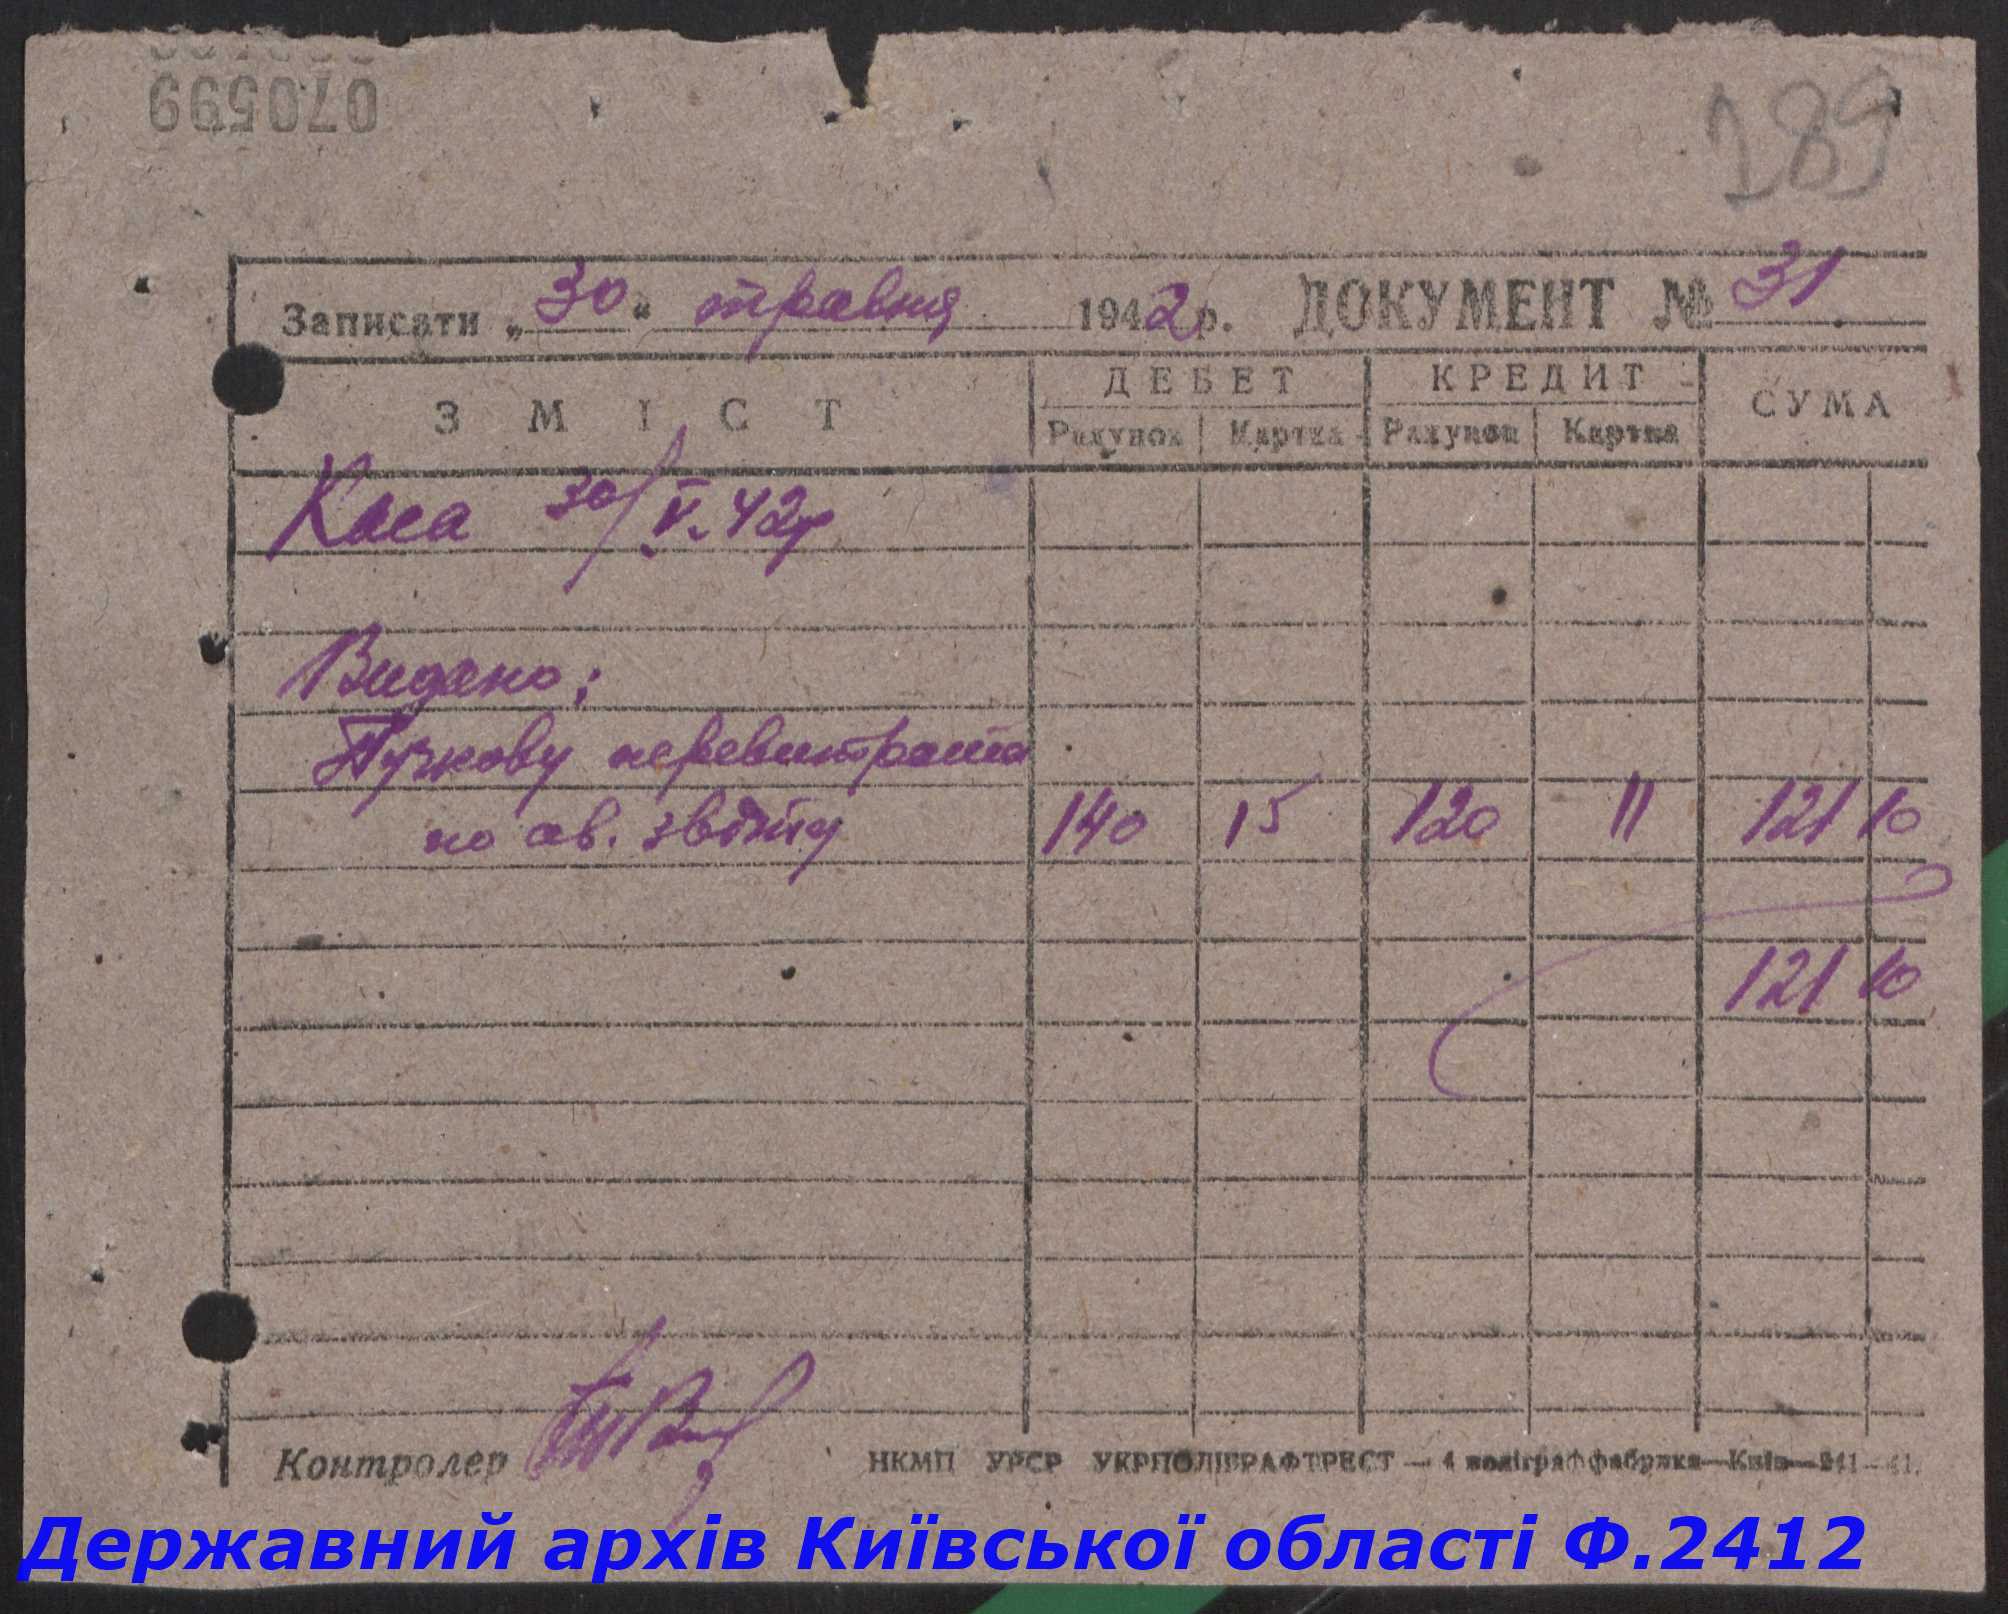 070599
189
Записати „30“ травня 1942 р. ДОКУМЕНТ № 31.
ЗМІСТ ДЕБЕТ КРЕДИТ СУМА
Рахунок Картка Рахунок Картка
Каса 30/V. 42р
Видано:
Пучкову перевитрата
по ав. звіту 140 15 120 11 121 10
121 10
Контролер
НКМП УРСР УКРПОЛІГРАФТРЕСТ — 4 поліграффабрика—Київ—241—41.
Державний архів Київської області Ф.2412